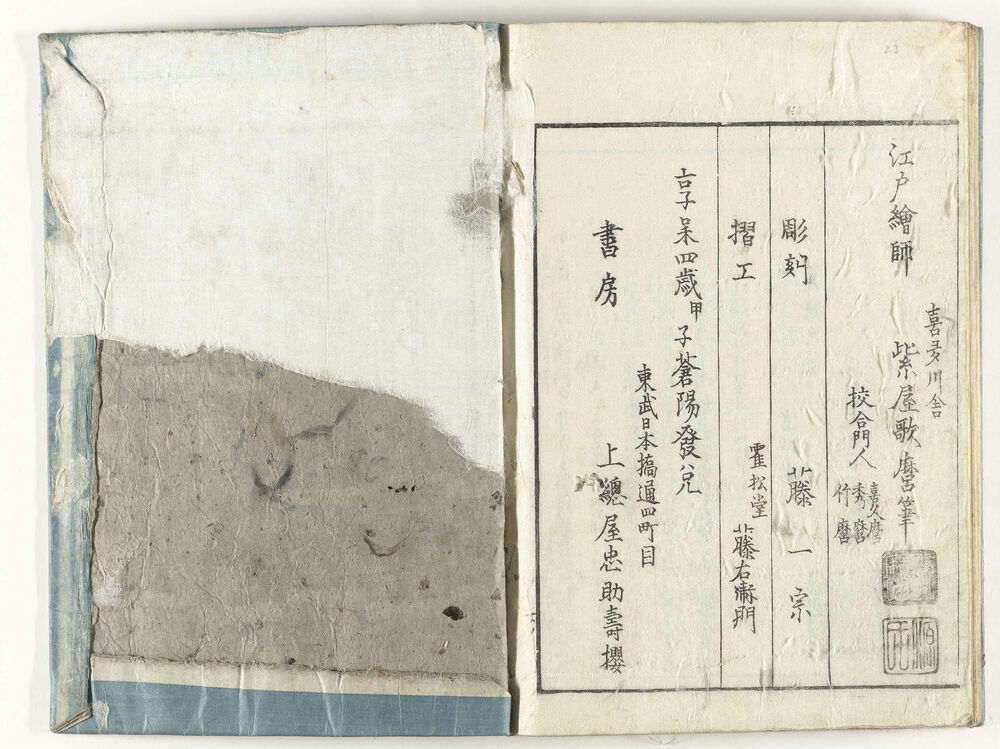 23
江戸繪師
喜多川舎
紫屋歌麿筆
挍合門人
喜久麿
秀麿
竹麿
彫刻 藤一宗
摺工 霍松堂 藤右衛門
享和四歳甲子蒼陽發兌
東武日本橋通四町目
書房 上總屋忠助壽櫻